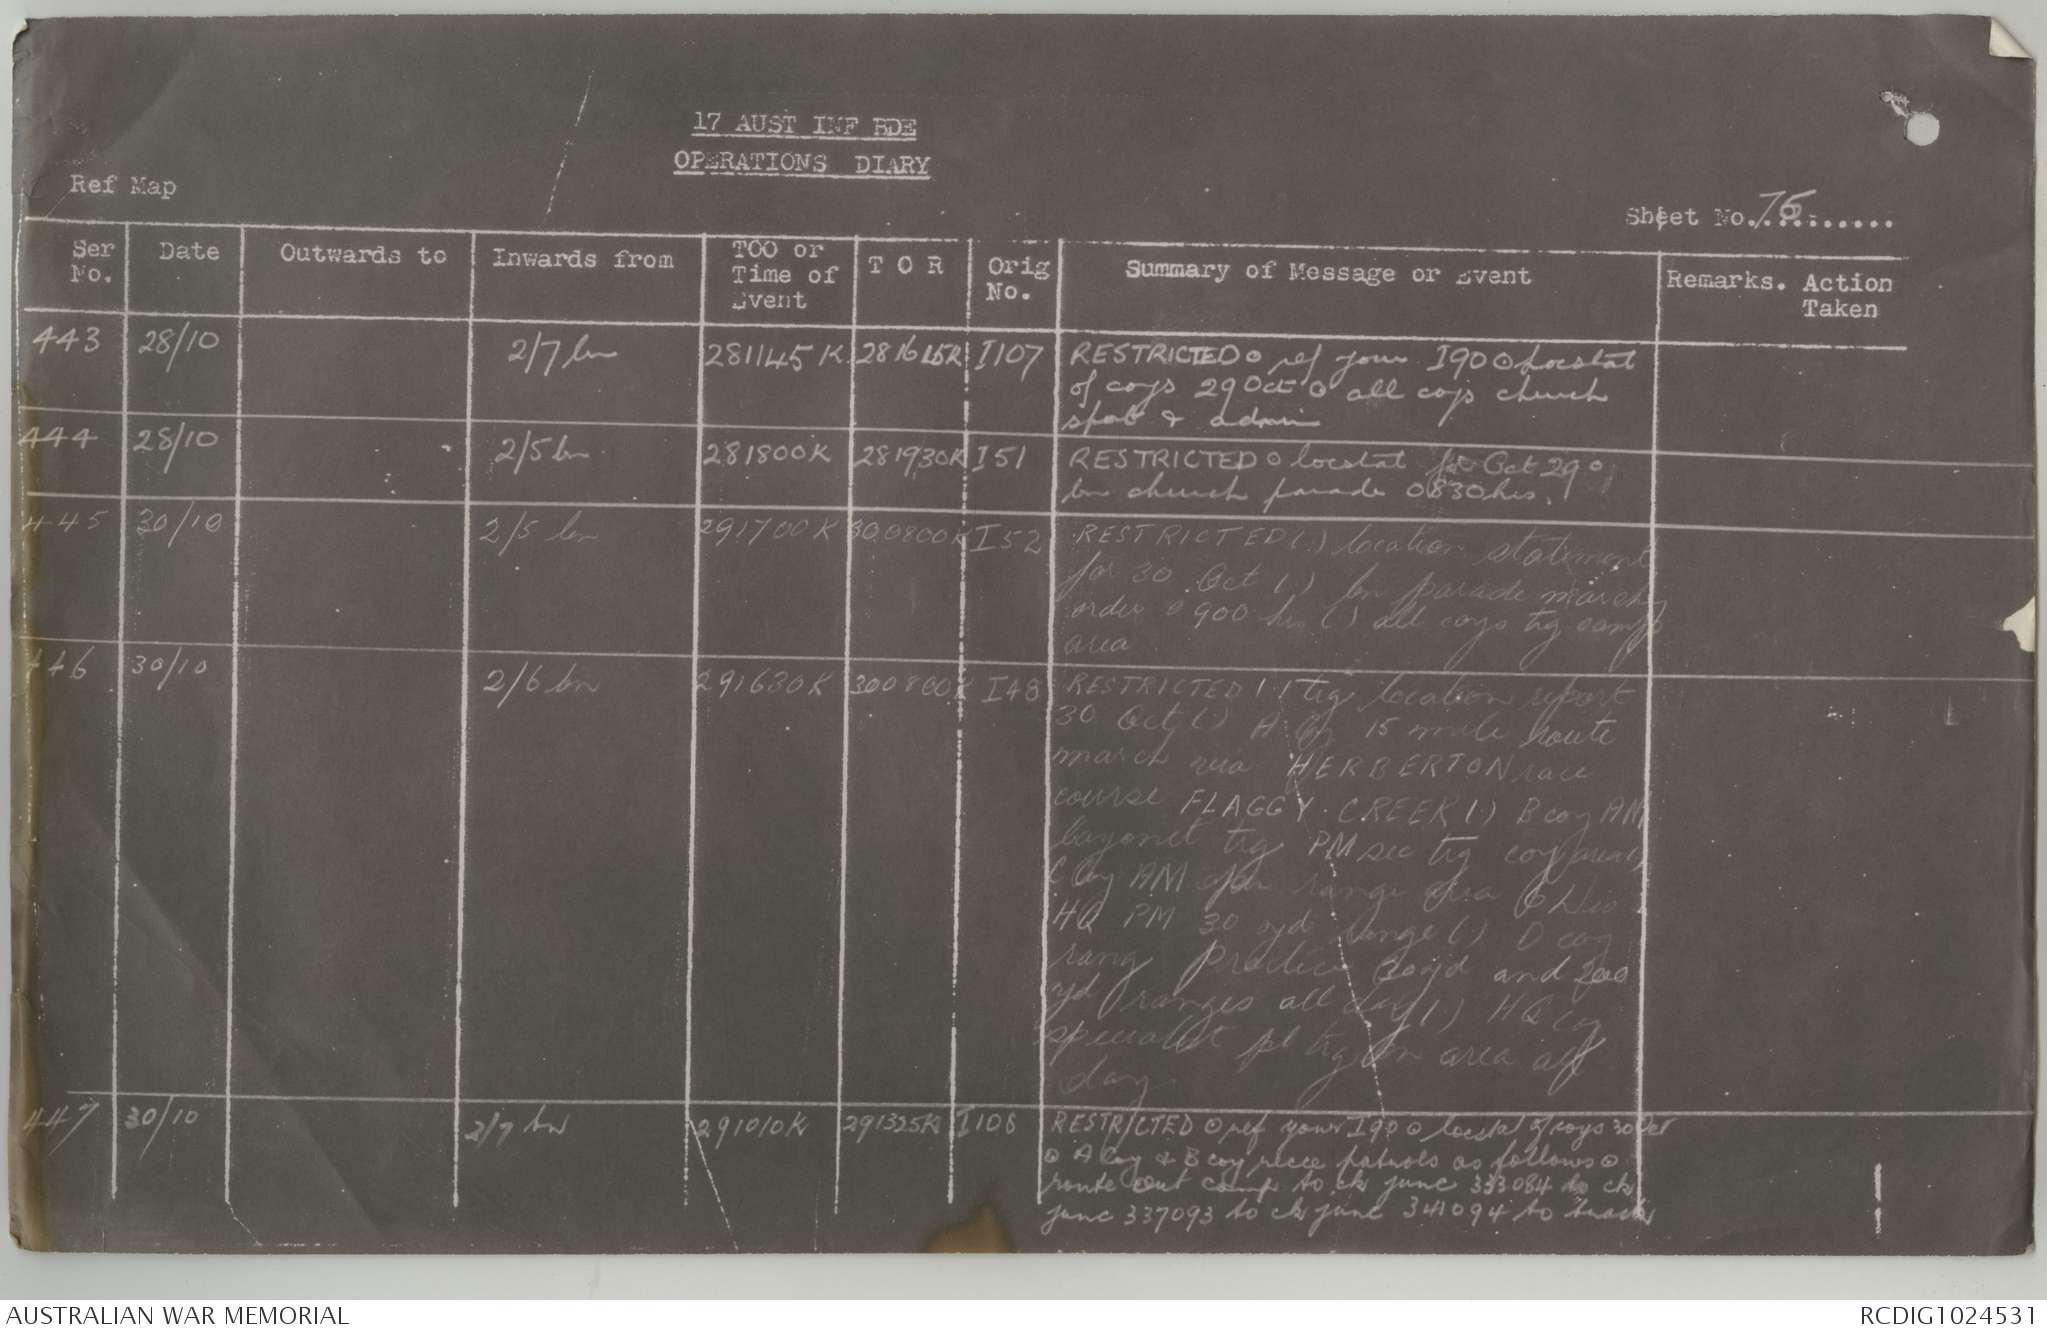 17 AUST INF BDE
OPERATIONS DIARY
Ref Map
Sheet No. 76
Ser No. Date Outwards to Inwards from TOO or Time of Event T O R Orig No. Summary of Message or Event Remarks. Action Taken
443 28/10 2/7 bn 281145K 281615K I107 RESTRICTED o ref your I90 o locstat
of coys 29 Oct o all coys church
& admin
444 28/10 2/5 bn 281800K 281930K I51 RESTRICTED o locstat for Oct 29 o
bn church parade 0830 hrs.
445 30/10 2/5 bn 291700K 300800K I52 RESTRICTED (.) location statement
for 30 Oct (.) bn parade march
order 0900 hrs (.) all coys trg camp
area
446 30/10 2/6 bn 291630K 300800K I48 RESTRICTED (.) trg location report
30 Oct (.) A Coy 15 mile route
march via HERBERTON race
course FLAGGY CREEK (.) B coy AM
bayonet trg PM sec trg coy area (.)
C Coy AM range area
HQ PM 30 yd range (.) D coy
range practice 30 yd and 200
yd ranges all day (.) HQ coy
specialist pl trg bn area all
day
447 30/10 2/7 bn 291010K 291325K I108 RESTRICTED o ref your I90 o locstat of coys 30 Oct
o A Coy & B coy recce patrols as follows o
route out camp to ck junc 333084 to ck
junc 337093 to ck junc 341094 to track
AUSTRALIAN WAR MEMORIAL
RCDIG1024531